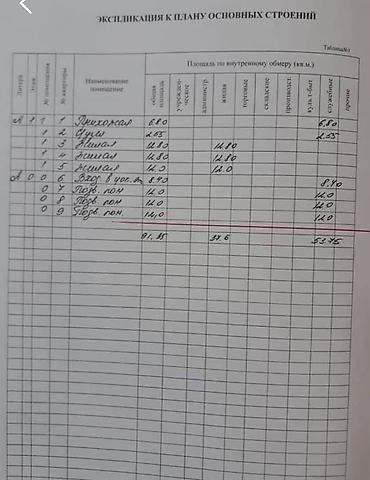 ЭКСПЛИКАЦИЯ К ПЛАНУ ОСНОВНЫХ СТРОЕНИЙ
Таблица№1
Литера
Этаж
№ помещения
№ квартиры
Наименование помещения
Площадь по внутреннему обмеру (кв.м.)
общая площадь
учрежден-ческое
администр.
жилая
торговые
складские
производст.
культ-быт.
служебные
прочие
А 1 1 1 Прихожая 6.80 6.80
1 2 Кухня 2.55 2.55
1 3 Жилая 12.80 12.80
1 4 Жилая 12.80 12.80
1 5 Жилая 12.0 12.0
А 0 0 6 Вход в 8.40 8.40
0 7 Подв. пом 12.0 12.0
0 8 Подв. пом 12.0 12.0
0 9 Подв. пом. 12,0 12.0
91.35 37.6 53.75